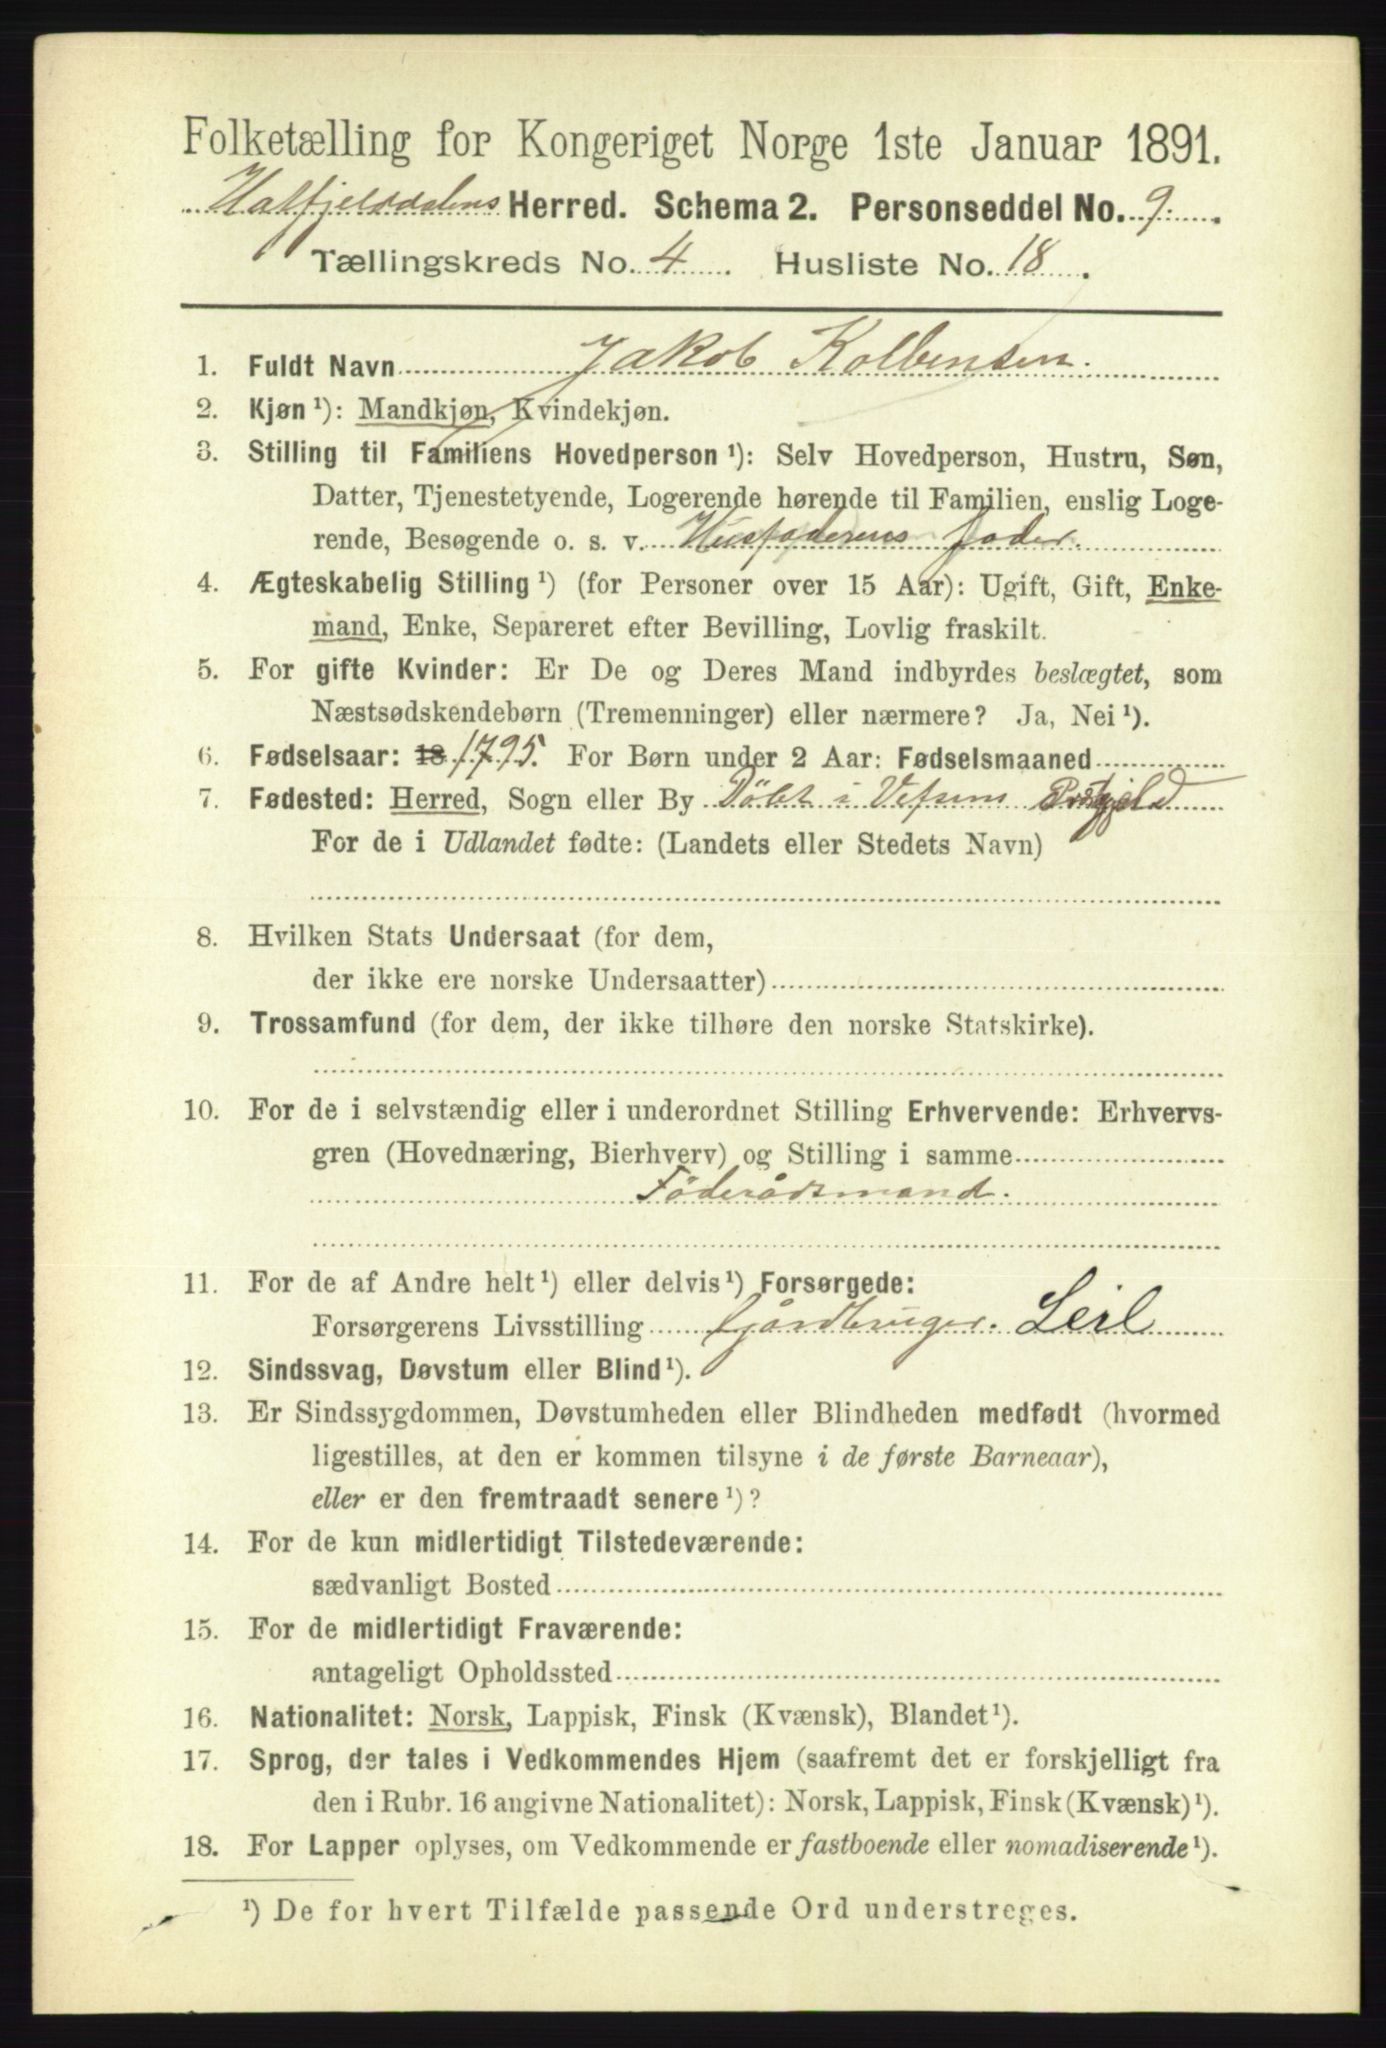 Folketælling for Kongeriget Norge 1ste Januar 1891.
Hatfjelddalens Herred. Schema 2. Personseddel No. 9.
Tællingskreds No. 4. Husliste No. 18.
1. Fuldt Navn Jakob Kolbensen.
2. Kjøn ¹): Mandkjøn, Kvindekjøn.
3. Stilling til Familiens Hovedperson ¹): Selv Hovedperson, Hustru, Søn,
Datter, Tjenestetyende, Logerende hørende til Familien, enslig Loge-
rende, Besøgende o. s. v. Husfaderens fader.
4. Ægteskabelig Stilling ¹) (for Personer over 15 Aar): Ugift, Gift, Enke-
mand, Enke, Separeret efter Bevilling, Lovlig fraskilt.
5. For gifte Kvinder: Er De og Deres Mand indbyrdes beslægtet, som
Næstsødskendebørn (Tremenninger) eller nærmere? Ja, Nei ¹).
6. Fødselsaar: 18 1795. For Børn under 2 Aar: Fødselsmaaned
7. Fødested: Herred, Sogn eller By Döbt i Vefsens Prstgjeld
For de i Udlandet fødte: (Landets eller Stedets Navn)
8. Hvilken Stats Undersaat (for dem,
der ikke ere norske Undersaatter)
9. Trossamfund (for dem, der ikke tilhøre den norske Statskirke).
10. For de i selvstændig eller i underordnet Stilling Erhvervende: Erhvervs-
gren (Hovednæring, Bierhverv) og Stilling i samme
Föderådsmand.
11. For de af Andre helt ¹) eller delvis ¹) Forsørgede:
Forsørgerens Livsstilling Gårdbruger. Leil
12. Sindssvag, Døvstum eller Blind ¹).
13. Er Sindssygdommen, Døvstumheden eller Blindheden medfødt (hvormed
ligestilles, at den er kommen tilsyne i de første Barneaar),
eller er den fremtraadt senere ¹)?
14. For de kun midlertidigt Tilstedeværende:
sædvanligt Bosted
15. For de midlertidigt Fraværende:
antageligt Opholdssted
16. Nationalitet: Norsk, Lappisk, Finsk (Kvænsk), Blandet ¹).
17. Sprog, der tales i Vedkommendes Hjem (saafremt det er forskjelligt fra
den i Rubr. 16 angivne Nationalitet): Norsk, Lappisk, Finsk (Kvænsk) ¹).
18. For Lapper oplyses, om Vedkommende er fastboende eller nomadiserende ¹).
¹) De for hvert Tilfælde passende Ord understreges.